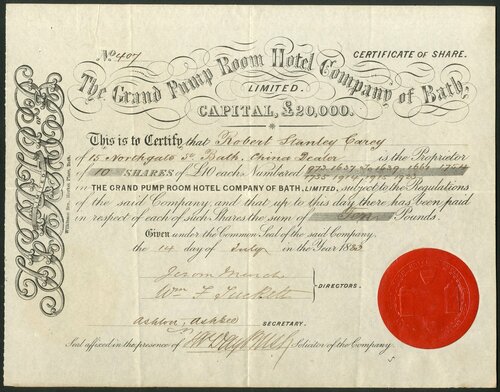 No. 407
CERTIFICATE OF SHARE.
The Grand Pump Room Hotel Company of Bath,
LIMITED.
CAPITAL, £20,000.
This is to Certify that Robert Stanley Carey
of 15 Northgate St. Bath, China Dealer is the Proprietor
of 10 SHARES of £10 each, Numbered 973 1637 to 1639
in THE GRAND PUMP ROOM HOTEL COMPANY OF BATH, LIMITED, subject to the Regulations
of the said Company, and that up to this day there has been paid
in respect of each of such Shares, the sum of Ten Pounds.
Given under the Common Seal of the said Company,
the 14 day of July in the Year 188
Jerom Murch
Wm F Tuckett
DIRECTORS.
SECRETARY.
Seal affixed in the presence of
Solicitor of the Company.